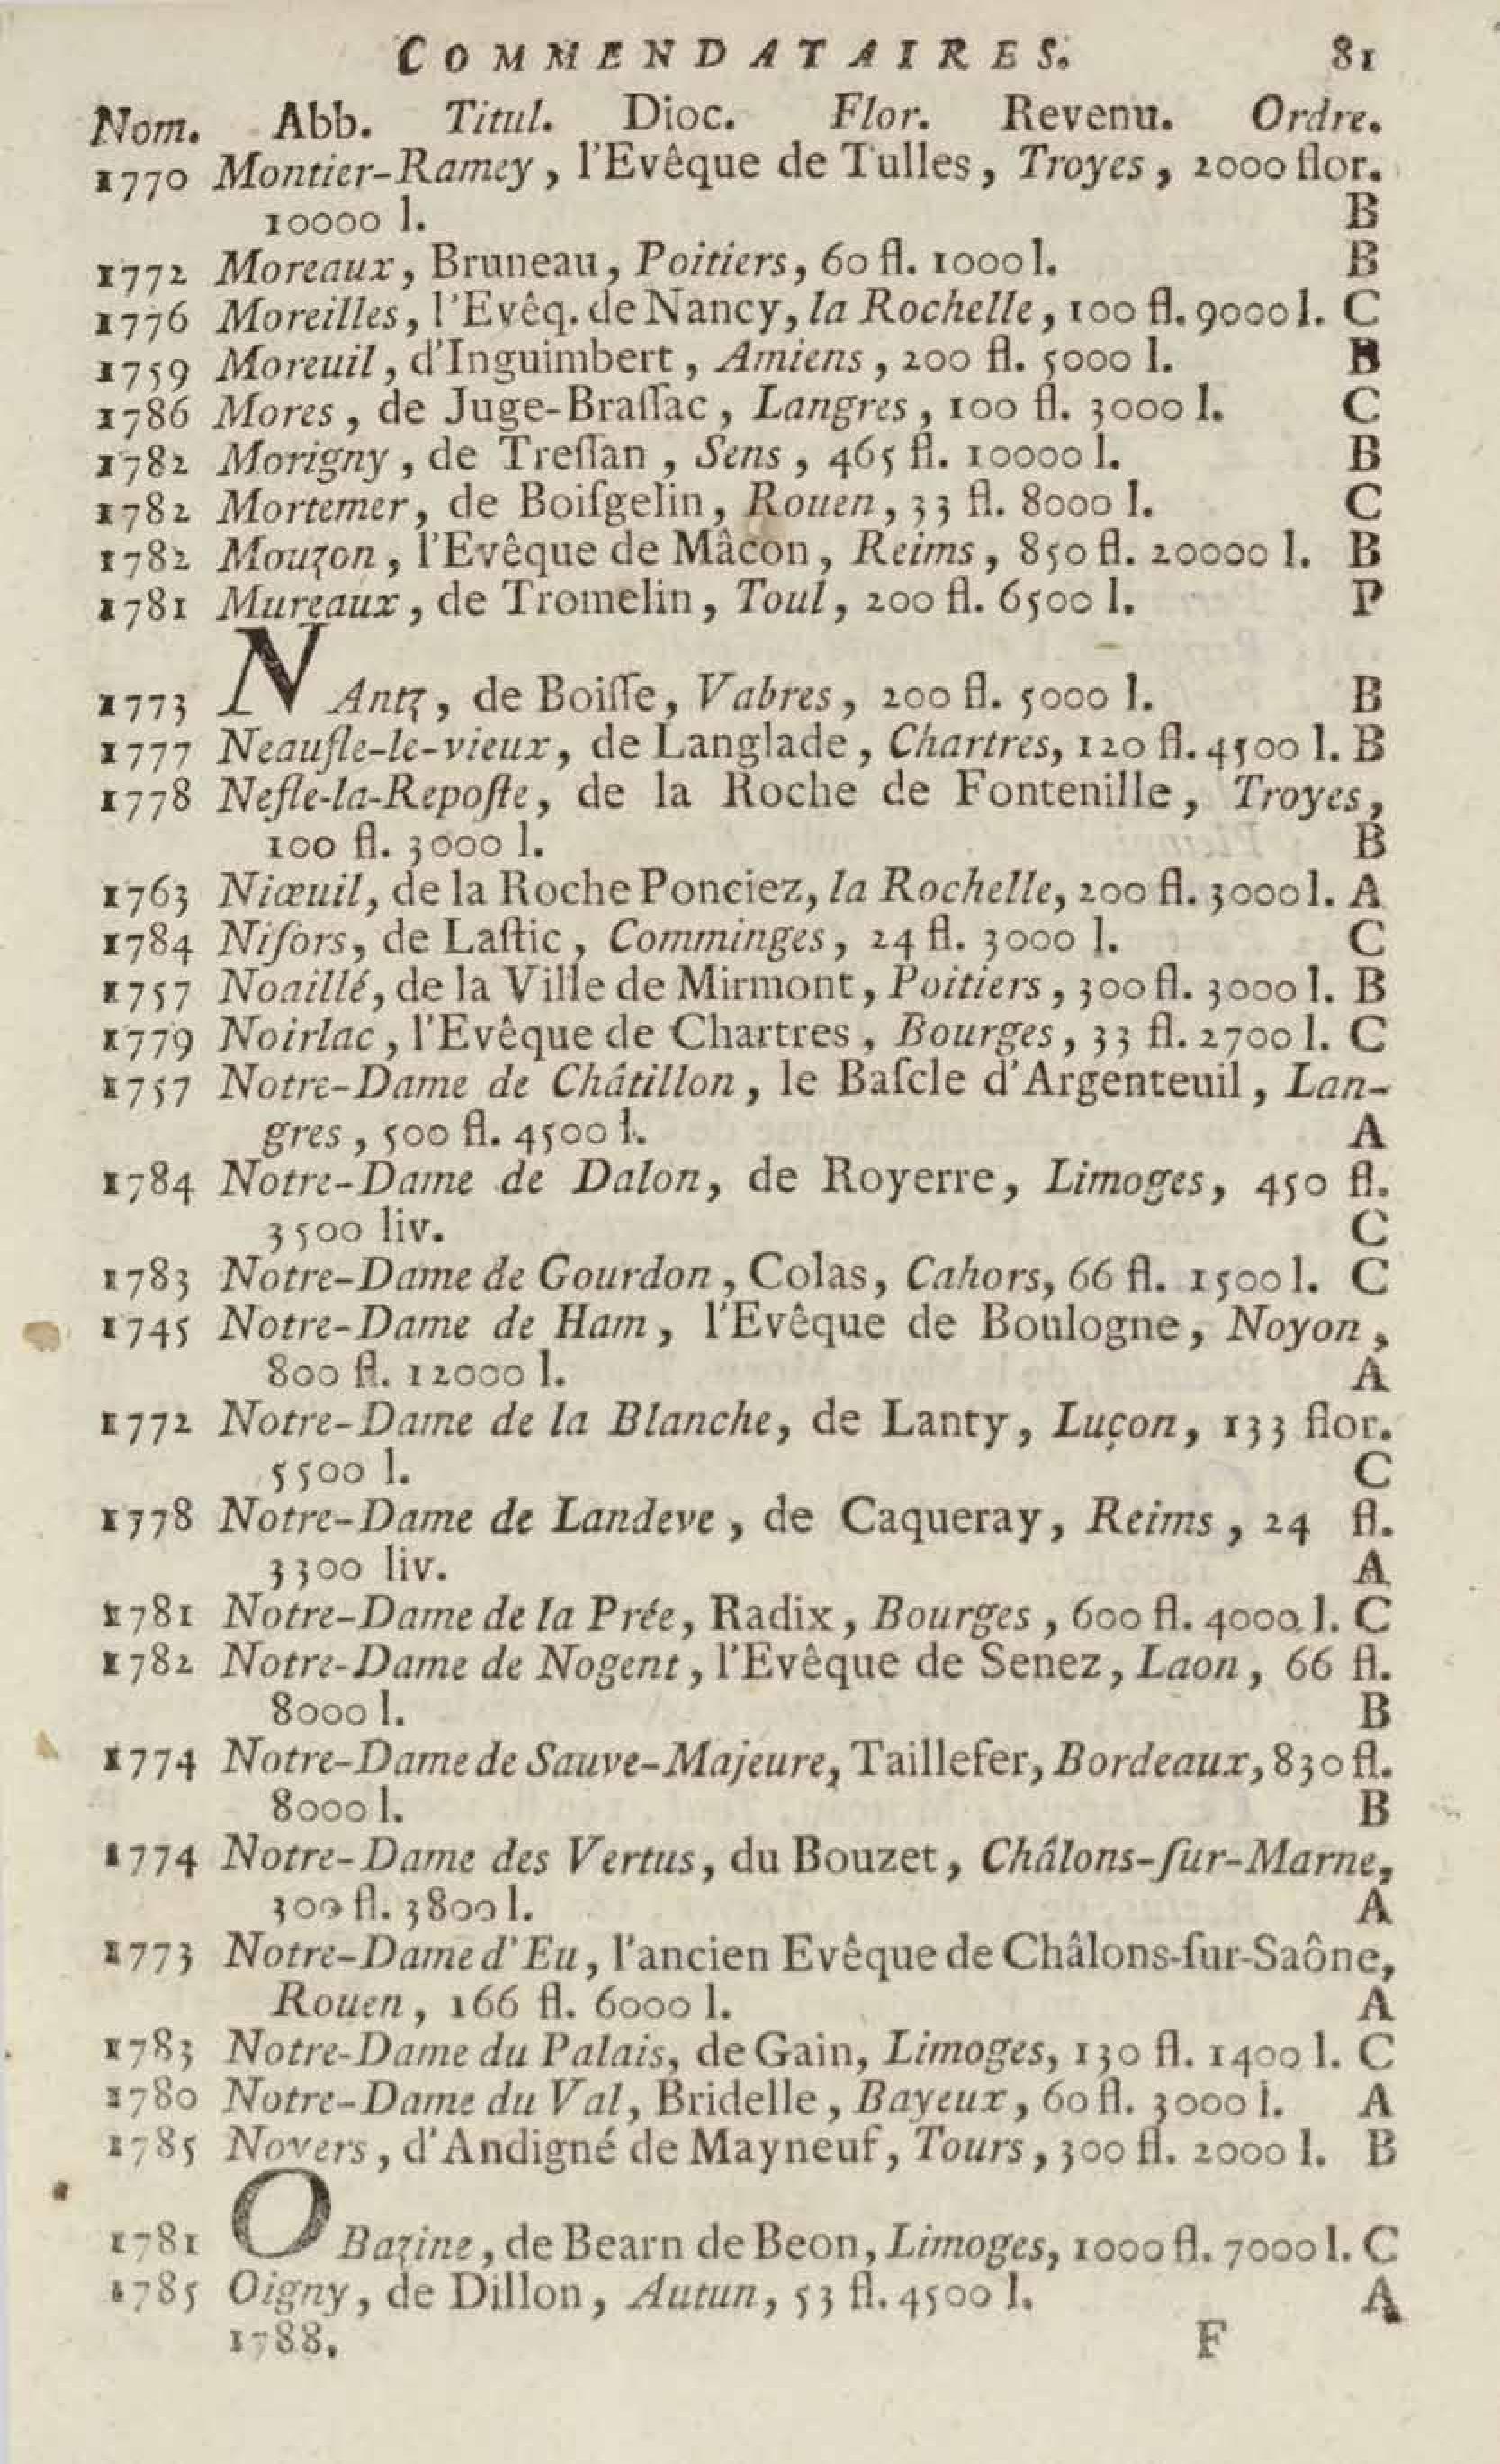 COMMENDATAIRES. 81
Nom. Abb. Titul. Dioc. Flor. Revenu. Ordre.
1770 Montier-Ramey, l'Evêque de Tulles, Troyes, 2000 flor.
10000 l. B
1772 Moreaux, Bruneau, Poitiers, 60 fl. 1000 l. B
1776 Moreilles, l'Evêq. de Nancy, la Rochelle, 100 fl. 9000 l. C
1759 Moreuil, d'Inguimbert, Amiens, 200 fl. 5000 l. B
1786 Mores, de Juge-Braſſac, Langres, 100 fl. 3000 l. C
1782 Morigny, de Treſſan, Sens, 465 fl. 10000 l. B
1782 Mortemer, de Boiſgelin, Rouen, 33 fl. 8000 l. C
1782 Mouzon, l'Evêque de Mâcon, Reims, 850 fl. 20000 l. B
1781 Mureaux, de Tromelin, Toul, 200 fl. 6500 l. P
1773 NAntz, de Boiſſe, Vabres, 200 fl. 5000 l. B
1777 Neaufle-le-vieux, de Langlade, Chartres, 120 fl. 4500 l. B
1778 Neſle-la-Repoſte, de la Roche de Fontenille, Troyes,
100 fl. 3000 l. B
1763 Niœuil, de la Roche Ponciez, la Rochelle, 200 fl. 3000 l. A
1784 Niſors, de Laſtic, Comminges, 24 fl. 3000 l. C
1757 Noaillé, de la Ville de Mirmont, Poitiers, 300 fl. 3000 l. B
1779 Noirlac, l'Evêque de Chartres, Bourges, 33 fl. 2700 l. C
1757 Notre-Dame de Châtillon, le Baſcle d'Argenteuil, Lan-
gres, 500 fl. 4500 l. A
1784 Notre-Dame de Dalon, de Royerre, Limoges, 450 fl.
3500 liv. C
1783 Notre-Dame de Gourdon, Colas, Cahors, 66 fl. 1500 l. C
1745 Notre-Dame de Ham, l'Evêque de Boulogne, Noyon,
800 fl. 12000 l. A
1772 Notre-Dame de la Blanche, de Lanty, Luçon, 133 flor.
5500 l. C
1778 Notre-Dame de Landeve, de Caqueray, Reims, 24 fl.
3300 liv. A
1781 Notre-Dame de la Prée, Radix, Bourges, 600 fl. 4000 l. C
1782 Notre-Dame de Nogent, l'Evêque de Senez, Laon, 66 fl.
8000 l. B
1774 Notre-Dame de Sauve-Majeure, Taillefer, Bordeaux, 830 fl.
8000 l. B
1774 Notre-Dame des Vertus, du Bouzet, Châlons-ſur-Marne,
300 fl. 3800 l. A
1773 Notre-Dame d'Eu, l'ancien Evêque de Châlons-ſur-Saône,
Rouen, 166 fl. 6000 l. A
1783 Notre-Dame du Palais, de Gain, Limoges, 130 fl. 1400 l. C
1780 Notre-Dame du Val, Bridelle, Bayeux, 60 fl. 3000 l. A
1785 Novers, d'Andigné de Mayneuf, Tours, 300 fl. 2000 l. B
1781 OBazine, de Bearn de Beon, Limoges, 1000 fl. 7000 l. C
1785 Oigny, de Dillon, Autun, 53 fl. 4500 l. A
1788. F